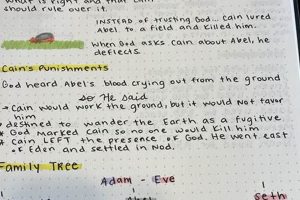 what is right and that Cain
should rule over it.
INSTEAD OF TRUSTING GOD... CAIN LURED
ABEL TO A FIELD AND KILLED HIM.
WHEN GOD ASKS CAIN ABOUT ABEL, HE
DEFLECTS.
Cain's Punishments
GOD HEARD ABEL'S BLOOD CRYING OUT FROM THE GROUND
SO HE SAID
→ CAIN WOULD WORK THE GROUND, BUT IT WOULD NOT FAVOR
HIM
* DESTINED TO WANDER THE EARTH AS A FUGITIVE
* GOD MARKED CAIN SO NO ONE WOULD KILL HIM
* CAIN LEFT THE PRESENCE OF GOD. HE WENT EAST
OF EDEN AND SETTLED IN NOD.
Family Tree
Adam - Eve
Abel
Seth